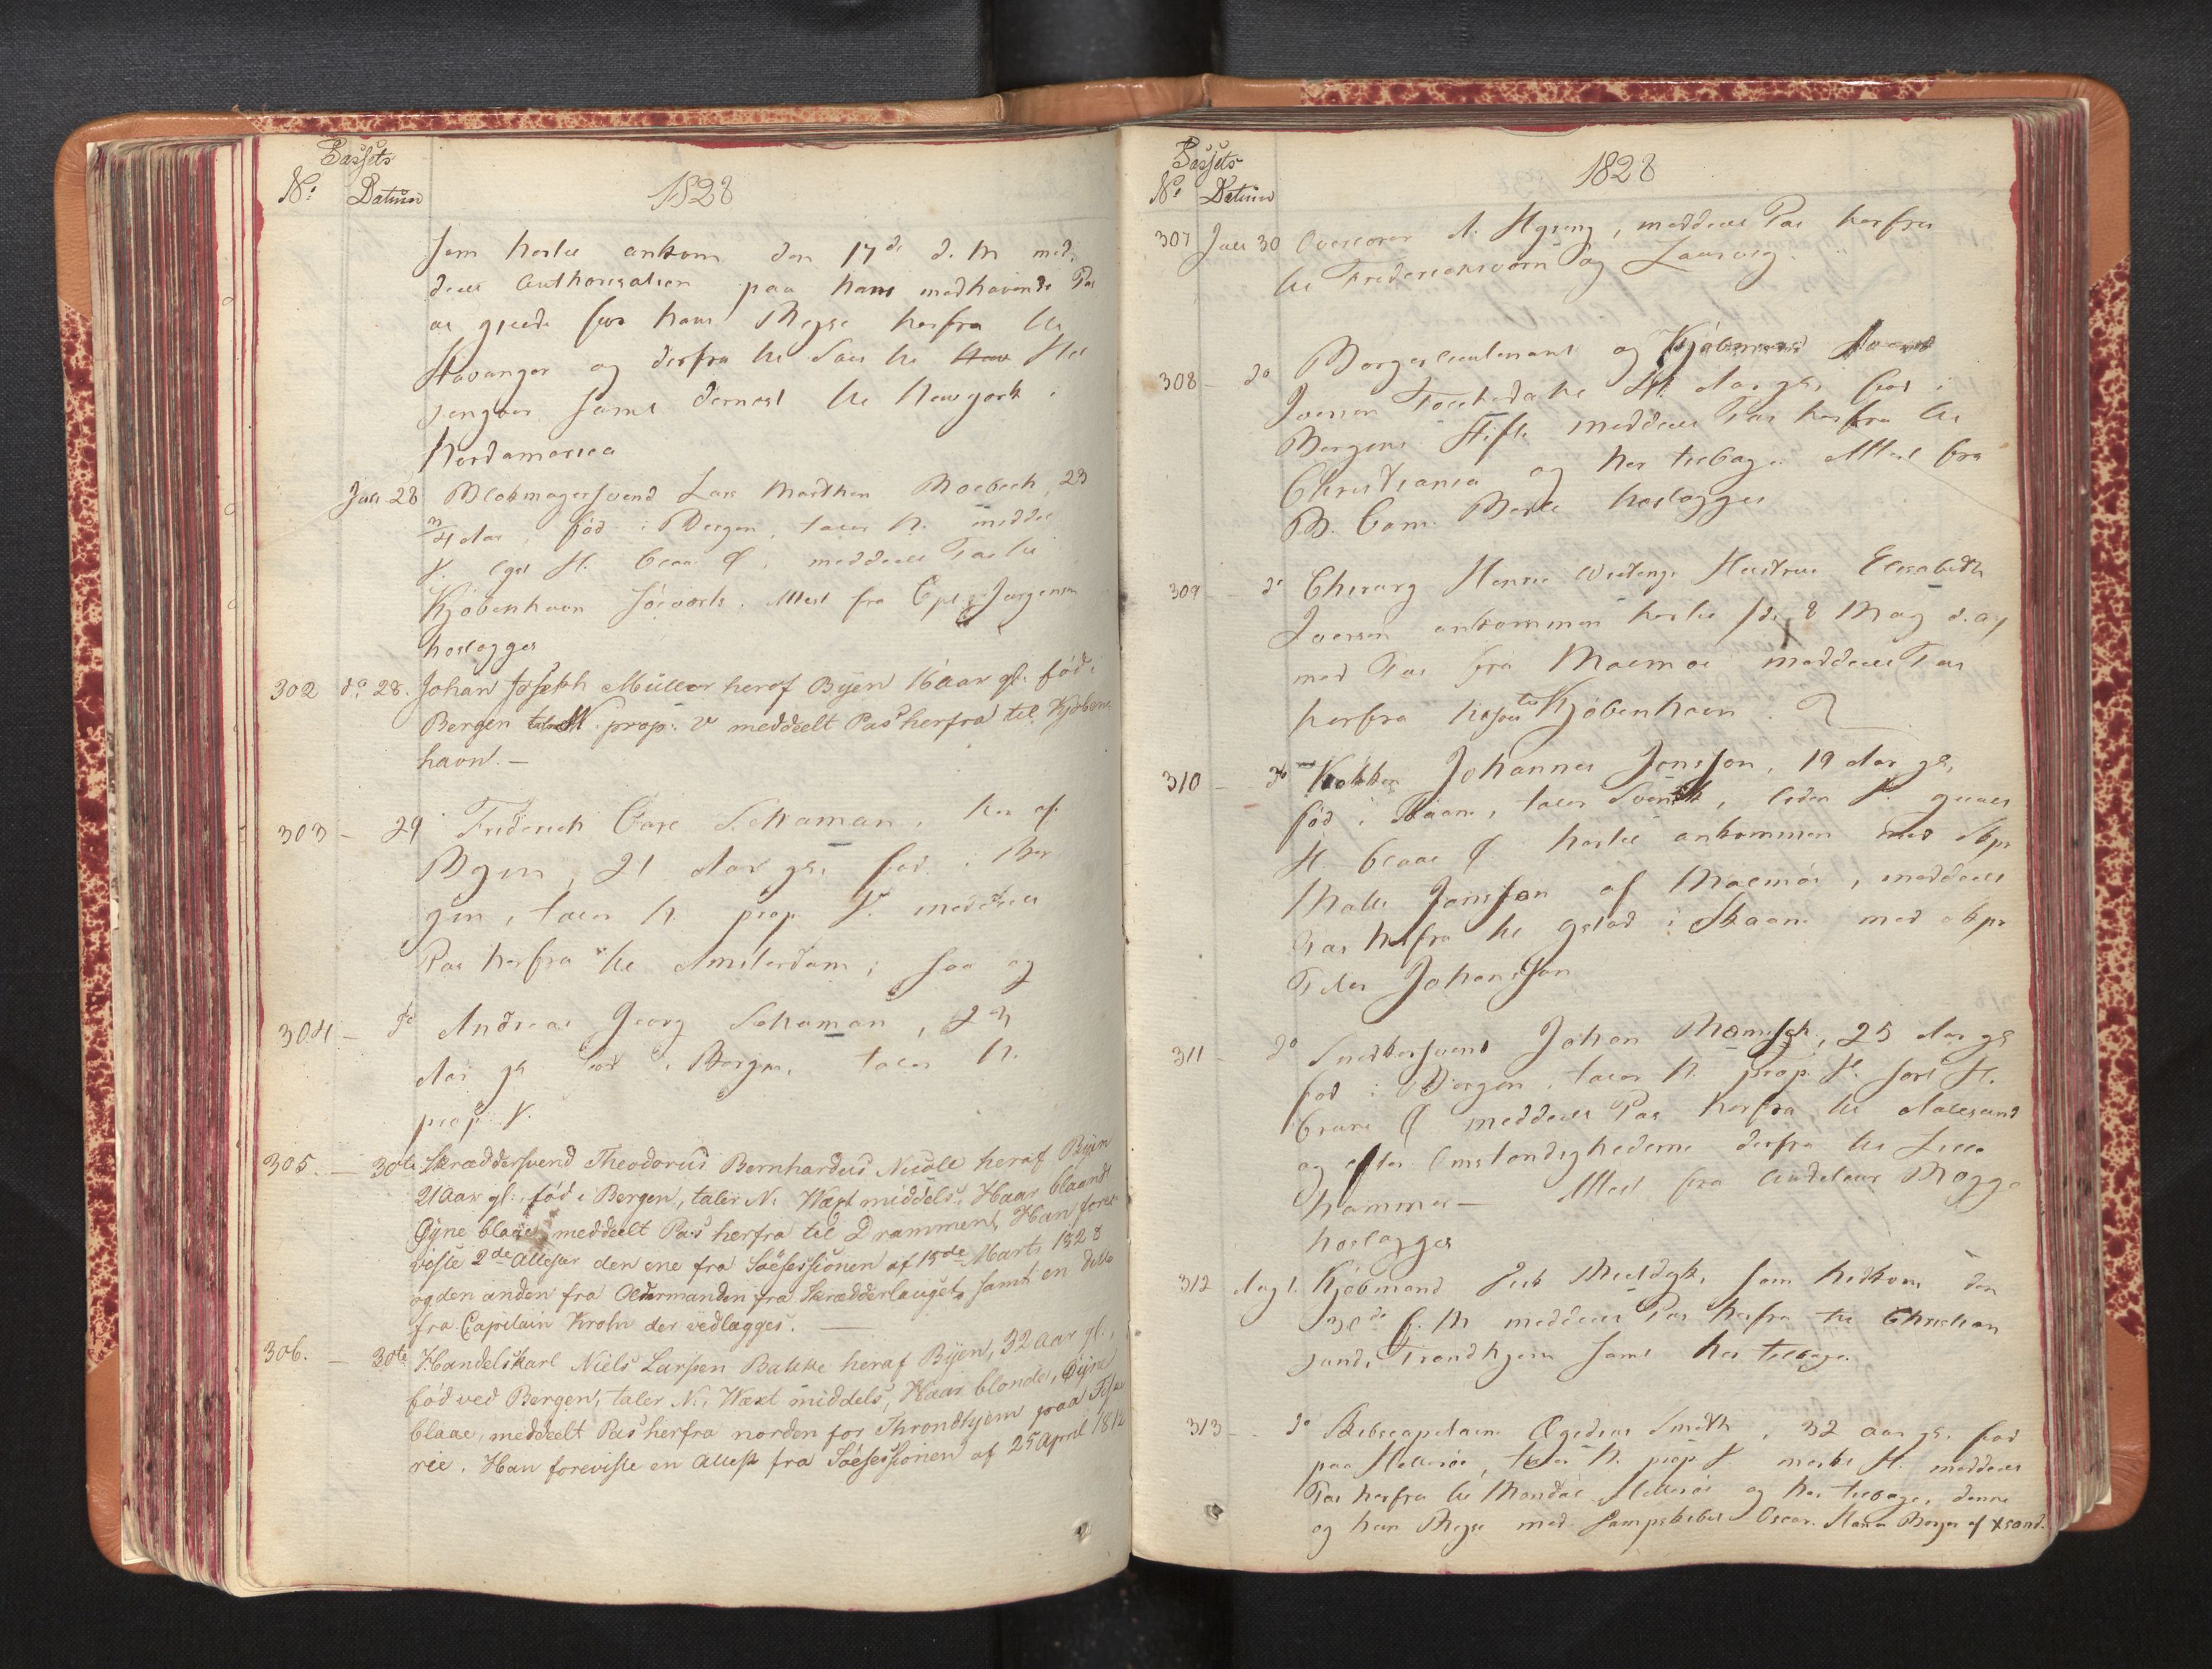 Passets
No: Datum 1828
som hertil ankom den 17de d. M med-
deelt Authorisation paa hans medhavende Pas
at gjelde for hans Reyse herfra til
Stavanger og derfra til
samt dernest til Newyork i
Nordamerica
Juli 28 Blokmagersvend Lars Marthin 23
Aar, fød i Bergen, taler N. middel
V. H. blaa Ø, meddeelt Pas til
Kjøbenhavn søeverts. Attest fra Cpt. Jørgensen
hoslægges
302 do 28. Johan Joseph Müller heraf Byen 16 Aar gl. fød i
Bergen taler N. prop: V meddeelt Pas herfra til Kjøben-
havn. —
303 — 29 Friderich Carl Schuman, her af
Byen, 21 Aar gl. fød i Ber
gen, taler N. prop V. meddeelt
Pas herfra til Amsterdam; saa og
304 — do Andreas Georg Schuman, 23
Aar gl fød i Bergen, taler N.
prop V.
305. — 30te Skræddersvend Theodorus Bernhardus Nicole heraf Byen
21 Aar gl., fød i Bergen, taler N. Wæxt middels, Haar blaandt
Øyne blaae, meddeelt Pas herfra til Drammen, Han fore-
viste 2de Attester den ene fra Søesessionen af 15de Marts 1828
og den anden fra Oldermanden fra Skrædderlauget, samt en ditto
fra Capitain Krohn der vedlægges. —
306. — 30te Handelskarl Niels Larsen Bakke heraf Byen, 32 Aar gl.,
fød ved Bergen, taler N., Wæxt middels, Haar blonde, Øyne
blaae, meddeelt Pas herfra norden for Throndhjem paa Fiske
rie. Han foreviste en Attest fra Søesessionen af 25 April 1812
Passets
No Datum 1828
307 Juli 30 A. Hysing, meddeelt Pas herfra
til Frideriksværn og Laurvig.
308 — do Borgerlieutenant og Kjøbmand
Iversen Aar gl, fød i
Bergens Stift meddeelt Pas herfra til
Christiania og her tilbage. Attest fra
B. Com. hoslægges
309 — do Chirurg Hustrue Elisabeth
Iversen ankommen hertil d. 8 May d. A.
med Pas fra Malmøe meddeelt Pas
herfra til Kjøbenhavn.
310 — do Kokken Johannes Jonsson, 19 Aar gl,
fød i Skaane, taler Svensk, liden V. guult
H blaae Ø hertil ankommen med Skpr
Malte Jonsson af Malmøe, meddeelt
Pas herfra til Ystad i Skaane med Skpr
Peter Johansson
311 — do Snedkersvend Johan 25 Aar gl
fød i Bergen, taler N. prop. V. sort H.
brune Ø meddeelt Pas herfra til Aalesund
og efter Omstændighederne derfra til Lille
hammer — Attest fra
hoslægges
312 Aug 1. Kjøbmand som hidkom den
30de f. M meddeelt Pas herfra til Christian
sund, Trondhjem samt her tilbage.
313 — do Skibscapitain Ægidius Smith, 32 Aar gl. fød
paa taler N. prop V mørkt H. meddeelt
Pas herfra til Mandal og her tilbage, denne
og hen Reyse med Dampskibet Oscar.